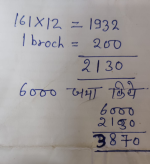 161×12 = 1932
1 broch = 200
2130
6000 जमा किये
6000
2130
3870